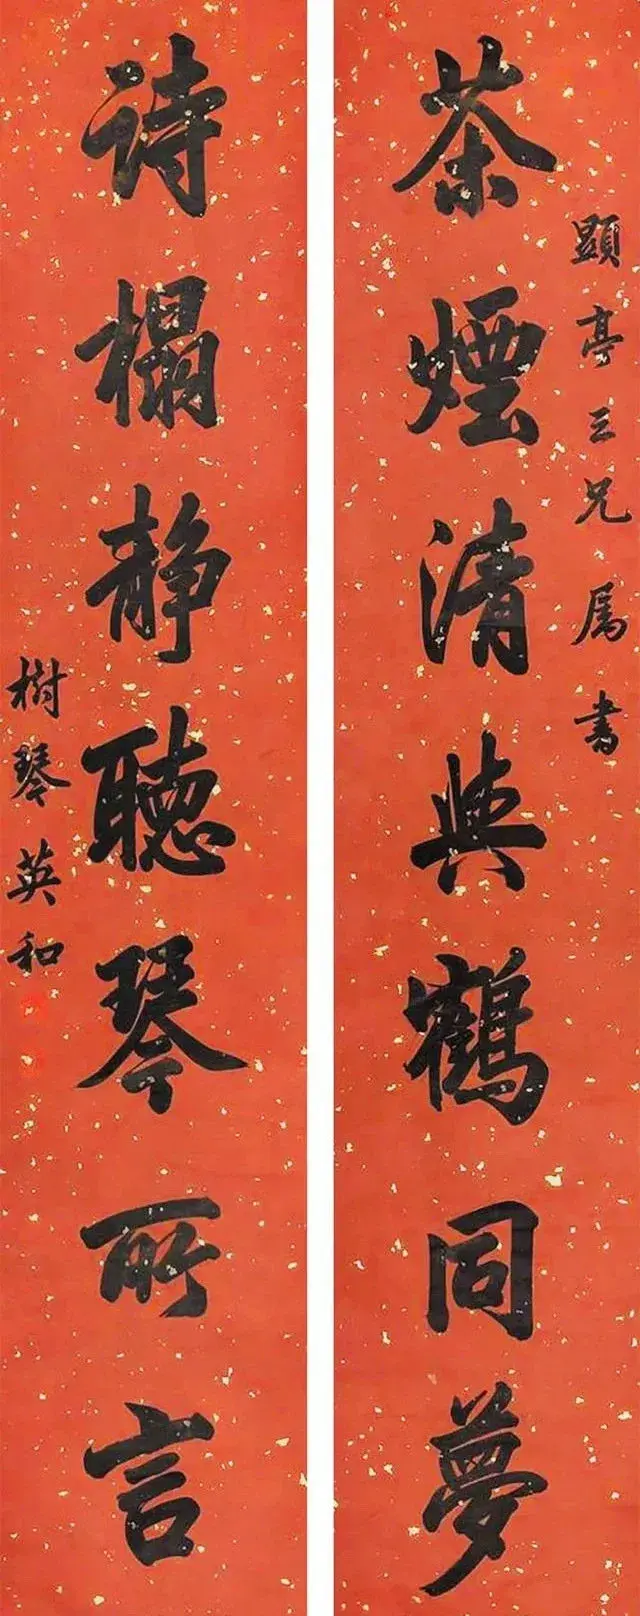 茶煙清與鶴同夢
顯亭三兄属書
詩榻静聴琴所言
樹琴英和